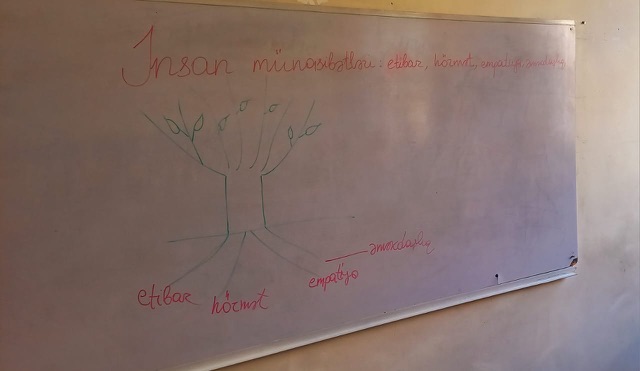 İnsan münasibətləri: etibar, hörmət, empatiya, əməkdaşlıq
əməkdaşlıq
etibar
hörmət
empatiya